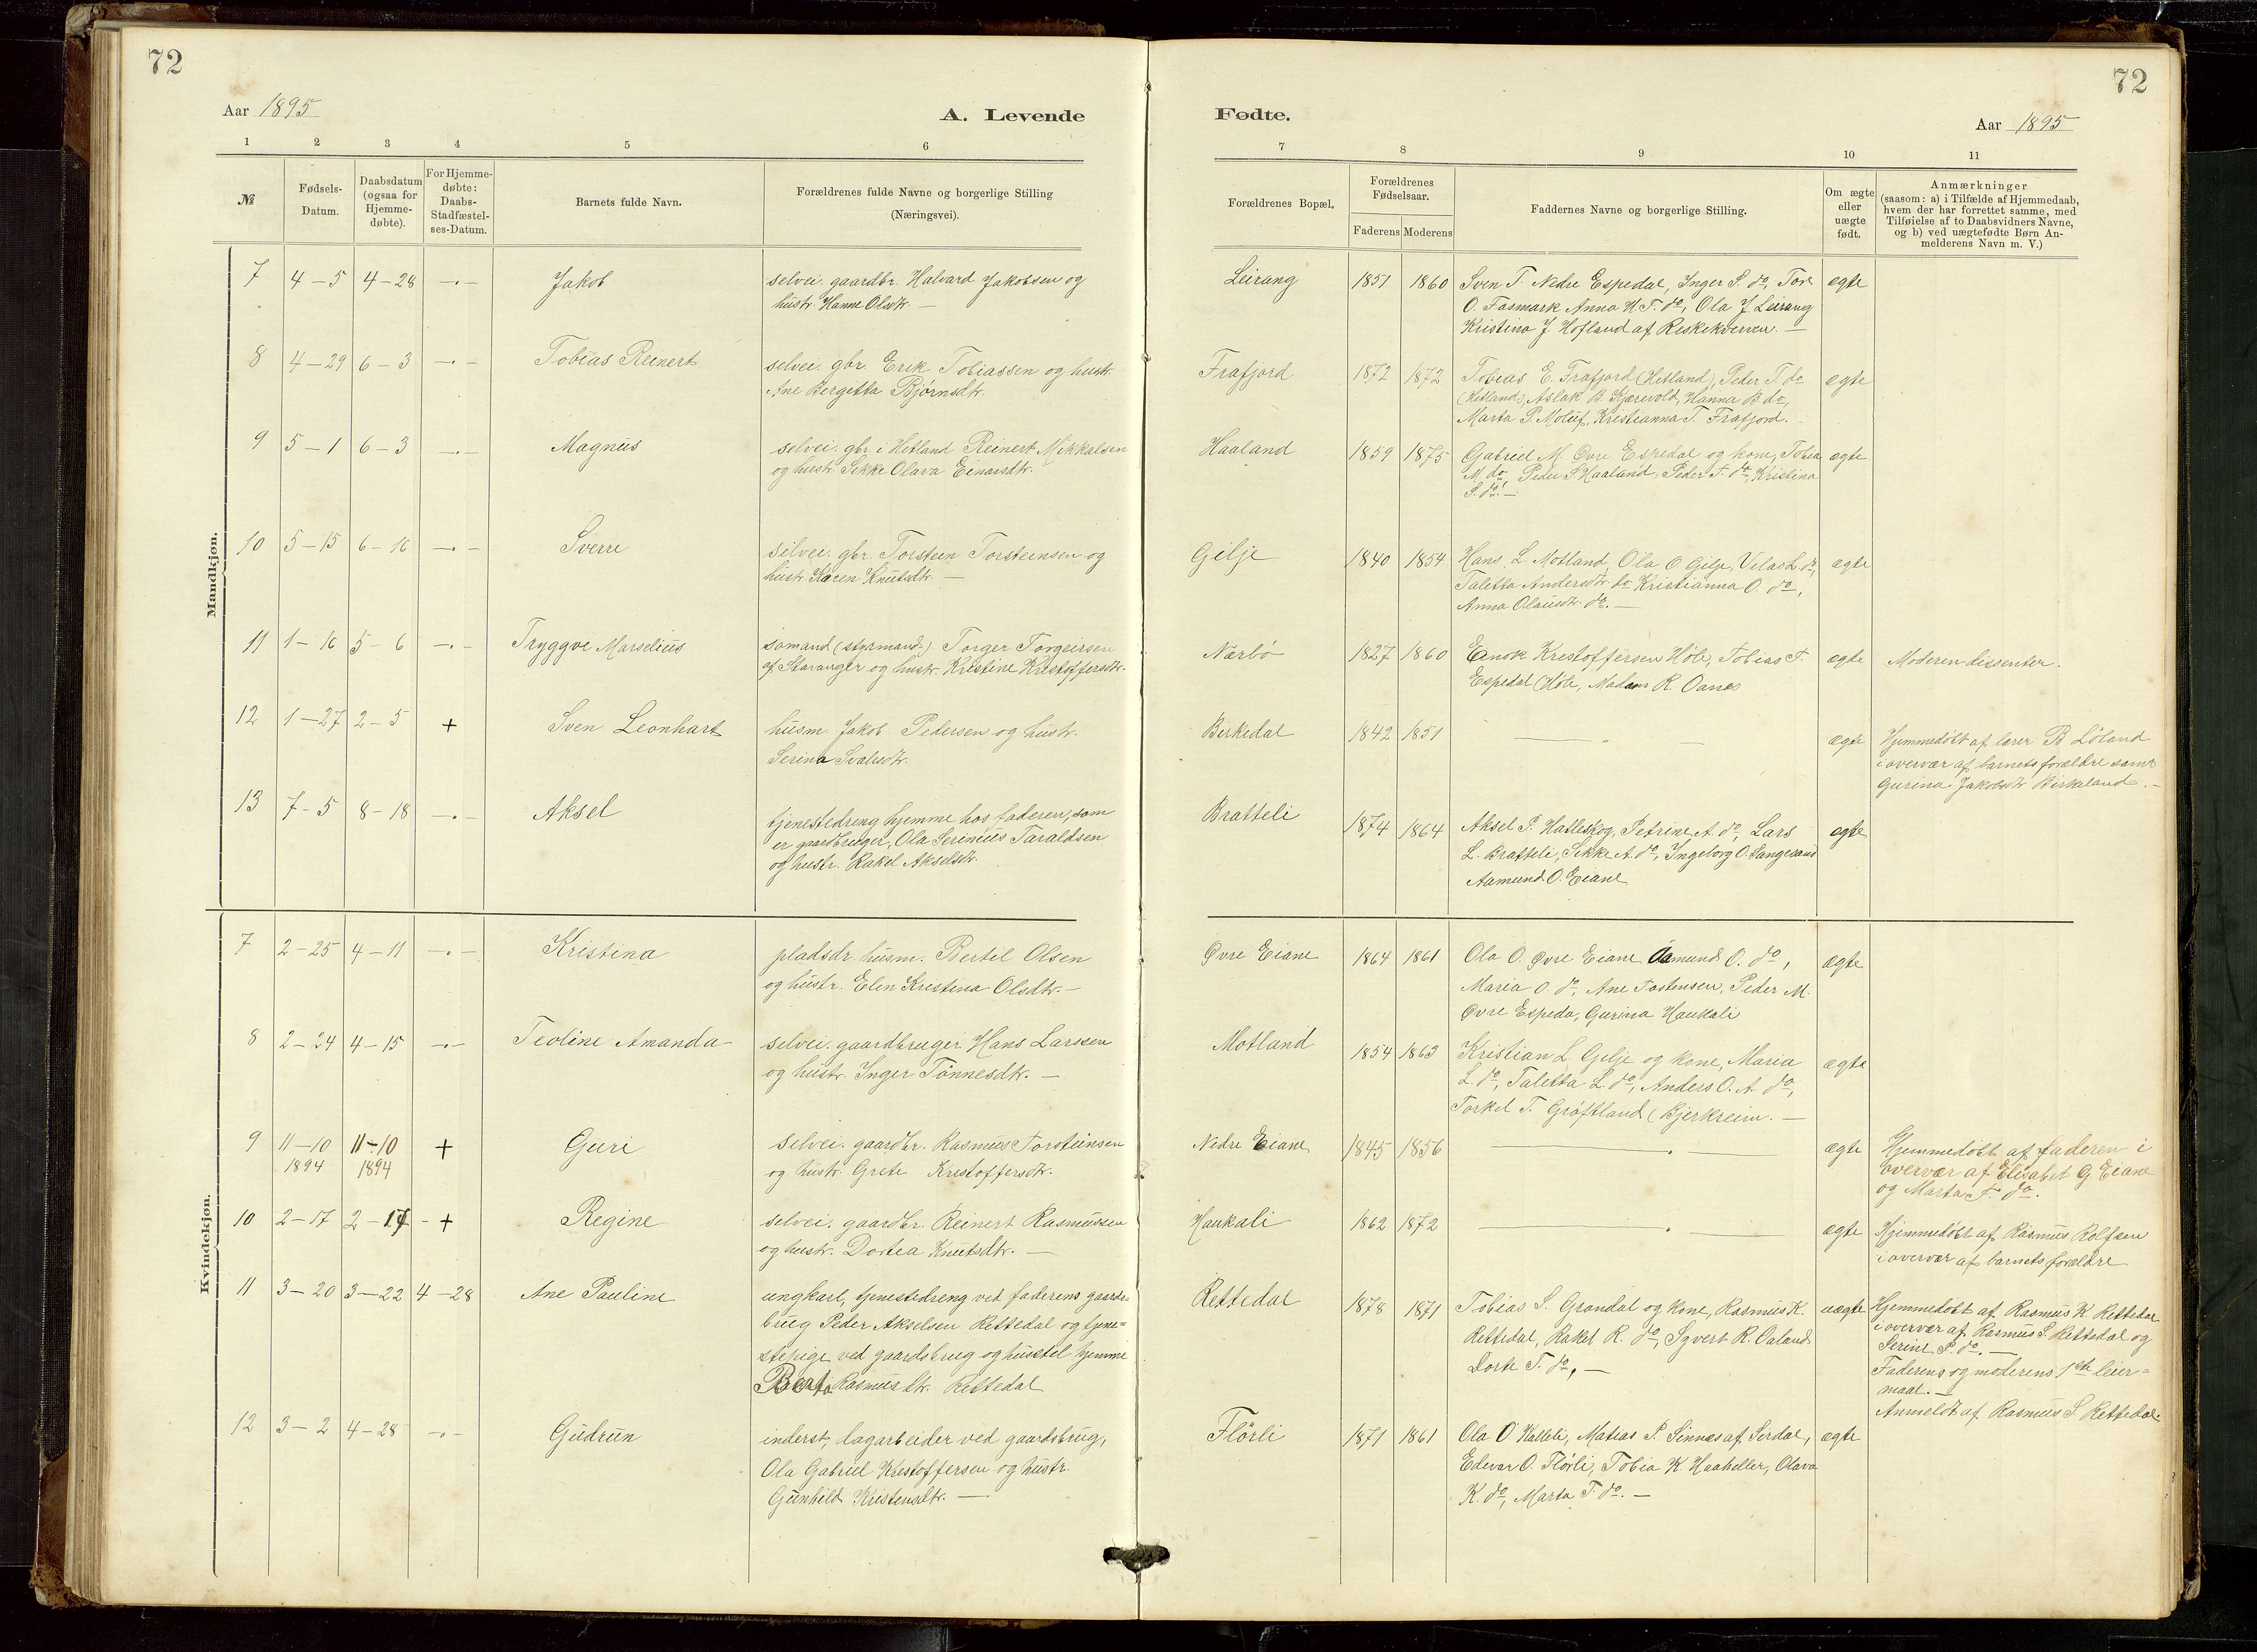 72
72
Aar 1895
A. Levende
Fødte.
Aar 1895
1 2 3 4 5 6 7 8 9 10 11
№
Fødsels-
Datum.
Daabsdatum
(ogsaa for
Hjemme-
døbte).
For Hjemme-
døbte:
Daabs-
Stadfæstel-
ses-Datum.
Barnets fulde Navn.
Forældrenes fulde Navne og borgerlige Stilling
(Næringsvei).
Forældrenes Bopæl.
Forældrenes
Fødselsaar.
Faderens Moderens
Faddernes Navne og borgerlige Stilling.
Om ægte
eller
uægte
født.
Anmærkninger
(saasom: a) i Tilfælde af Hjemmedaab,
hvem der har forrettet samme, med
Tilføielse af to Daabsvidners Navne,
og b) ved uægtefødte Børn An-
melderens Navn m. V.)
Mandkjøn.
7 4-5 4-28 -·- Jakob
selvei. gaardbr. Halvard Jakobsen og
hustr. Hanne Olsdtr. —
Leirang 1851 1860
Sven T. Nedre Espedal, Inger S. do, Tore
O. Fosmark Anna H T. do, Ola J. Leirang
Kristina J. Hofland af Reskekverven. —
ægte
8 4-29 6-3 -·- Tobias Reinert
selvei. gbr. Erik Tobiassen og hustr.
Ane Bergetta Bjørnsdtr.
Frafjord 1872 1872
Tobias E. Frafjord (Hetland), Peder T. do
(Hetland), Aslak B. Kjærevold, Hanna B. do,
Marta P. Moluf, Kristianna T. Frafjord.
ægte
9 5-1 6-3 -·- Magnus
selvei. gbr. i Hetland Reinert Mikkalsen
og hustr. Sikke Olava Einarsdtr.
Haaland 1859 1875
Gabriel M. Øvre Espedal og kone, Tobia
M. do, Peder S. Haaland, Peder T. do, Kristina
S. do. —
ægte
10 5-15 6-16 -·- Sverre
selvei. gbr. Torstein Torsteinsen og
hustr. Karen Knutsdtr. —
Gilje 1840 1854
Hans L. Motland, Ola O. Gilje, Velas L. do,
Taletta Andersdtr. do Kristianna O. do,
Anna Olausdtr. do. —
ægte
11 1-16 5-6 -·- Tryggve Marselius
sømand (styrmand) Torger Torgeirsen
af Stavanger og hustr. Kristine Kristoffersdtr.
Nærbø 1827 1860
Enok Kristoffersen Høle, Tobias T.
Espedal (Høle, Madam R. Oanes
ægte
Moderen dissenter.
12 1-27 2-5 + Sven Leonhart
husm. Jakob Pedersen og hustr.
Serina Svalisdtr.
Birkedal 1842 1851
— „ —
ægte
Hjemmedøbt af lærer B Løland
i overvær af barnets forældre samt
Gurina Jakobsdtr Birkeland. —
13 7-5 8-18 -·- Aksel
tjenestedreng hjemme hos faderen, som
er gaardbruger, Ola Serinius Taraldsen
og hustr. Rakel Akselsdtr.
Bratteli 1874 1864
Aksel P. Hatleskog, Petrine A. do, Lars
L. Bratteli, Sikke A. do, Ingeborg O. Sangesand
Aamund O. Eiane
ægte
Kvindekjøn.
7 2-25 4-11 -·- Kristina
pladsdr. husm. Bertil Olsen
og hustr. Elen Kristina Olsdtr. —
Øvre Eiane 1864 1861
Ola O. Øvre Eiane Aamund O. do,
Maria O. do, Ane Tostensen, Peder M.
Øvre Espeda, Gurina Haukali
ægte
8 2-24 4-15 -·- Teoline Amanda
selvei. gaardbruger Hans Larssen
og hustr. Inger Tønnesdtr. —
Motland 1854 1863
Kristian L. Gilje og kone, Maria
L. do, Taletta L. do, Anders O. A. do,
Torkel T. Grøftland (Bjerkreim. —
ægte
9 11-10 11-10 + Guri
1894 1894
selvei. gaardbr. Rasmus Torsteinsen
og hustr. Grete Kristoffersdtr.
Nedre Eiane 1845 1856
ægte
Hjemmedøbt af faderen i
overvær af Elisabet G. Eiane
og Marta T. do.
10 2-17 2-17 + Regine
selvei. gaardbr. Reinert Rasmussen
og hustr. Dortea Knutsdtr. —
Haukali 1862 1872
ægte
Hjemmedøbt af Rasmus Rolfsen
i overvær af barnets forældre
11 3-20 3-22 4-28 Ane Pauline
ungkarl, tjenestedreng ved faderens gaards-
brug Peder Akselsen Rettedal og tjene-
stepige ved gaardsbrug og husstel hjemme
Berta Rasmusdtr. Rettedal
Rettedal 1878 1871
Tobias S. Grøndal og kone, Rasmus K.
Rettedal, Rakel R. do, Syvert R. Oaland
Dorte T. do, —
uægte
Hjemmedøbt af Rasmus K Rettedal
i overvær af Rasmus S. Rettedal og
Serine P. do. —
Faderens og moderens 1ste leier-
maal. —
Anmeldt af Rasmus S. Rettedal.
12 3-2 4-28 -·- Gudrun
inderst, dagarbeider ved gaardsbrug,
Ola Gabriel Kristoffersen og hustr.
Gunhild Kristensdtr. —
Flørli 1871 1861
Ola O Kalleli, Matias P. Sinnes af Sirdal,
Edevar O. Flørli, Tobia K. Haaheller, Olava
K. do, Marta T. do. —
ægte